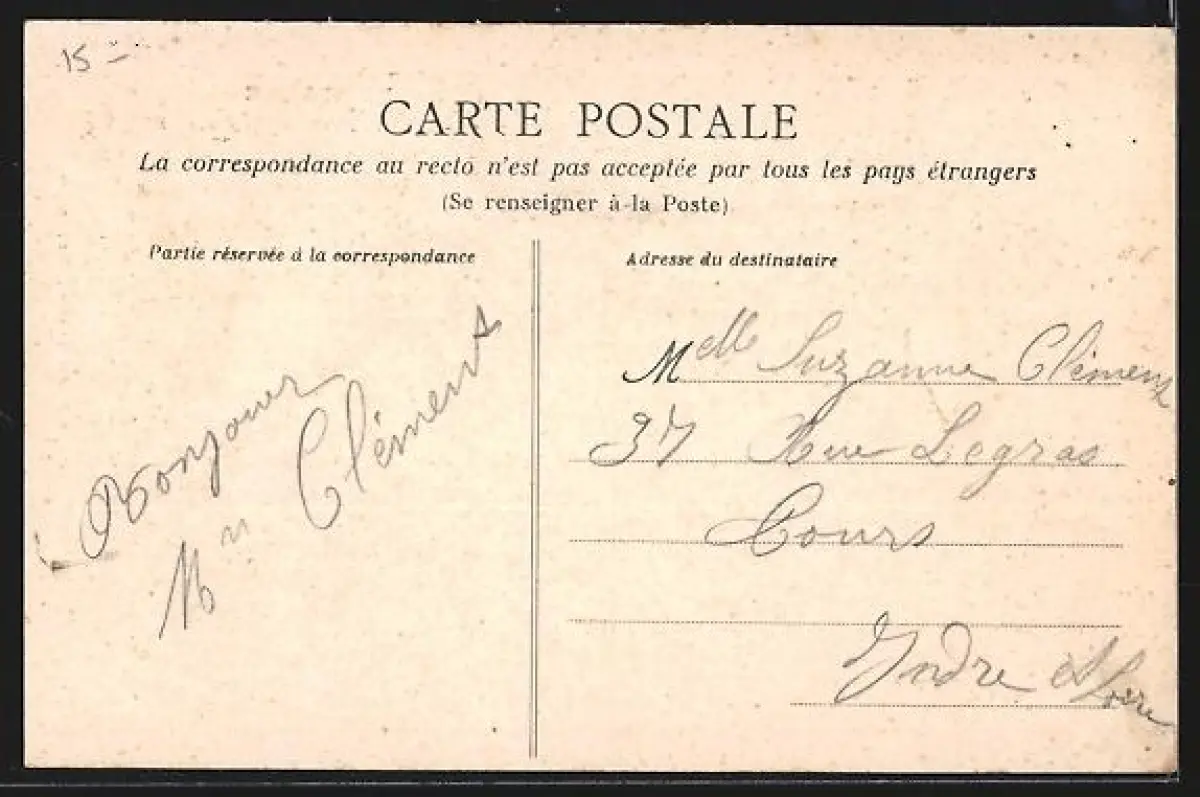 15
CARTE POSTALE
La correspondance au recto n'est pas acceptée par tous les pays étrangers
(Se renseigner à la Poste)
Partie réservée à la correspondance
Bonjour
Mr Clément
Adresse du destinataire
Melle Suzanne Clément
37 Rue Legras
Tours
Indre et Loire